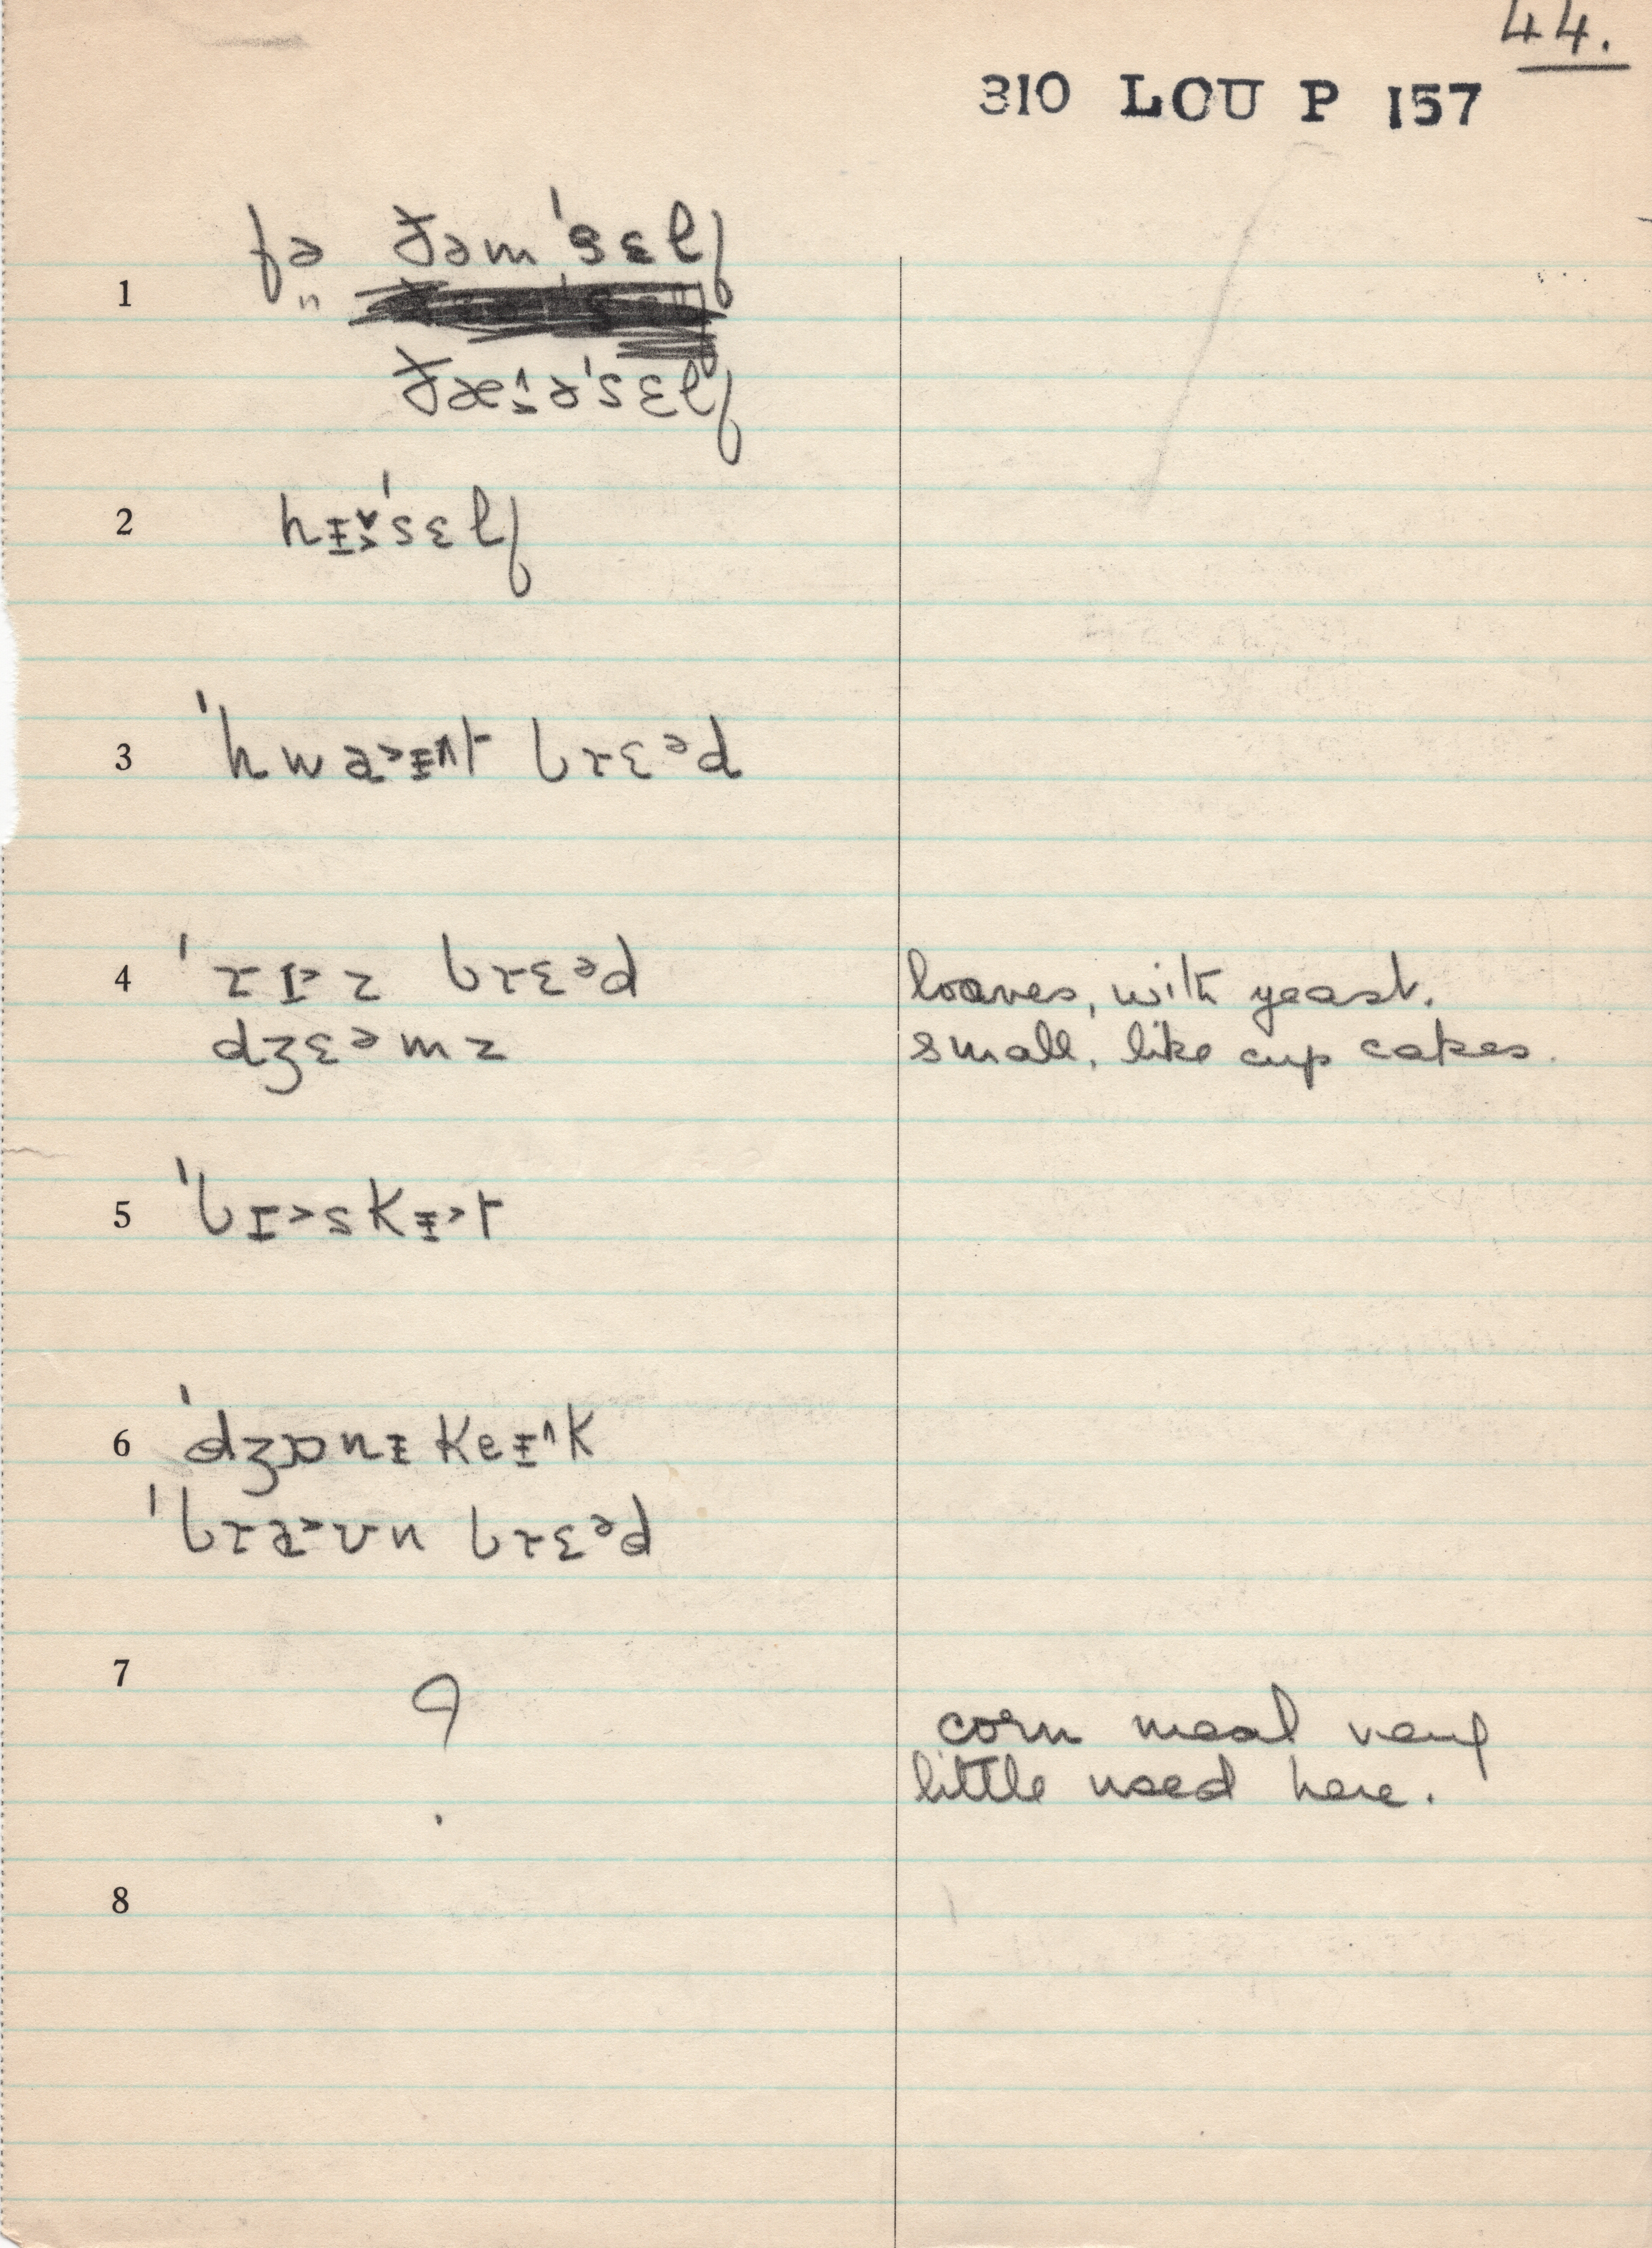 44.
310 LOU P 157
1 fə ðəm'sɛlf
"
ðæɪ^ə'sɛlf
2 hɪ'sɛlf
3 'hwɐ>ᵻ^t brɛᵊd
4 'raɪz brɛᵊd loaves, with yeast.
dʒɛᵊmz small, like cup cakes.
5 'bɪ>skᵻ>t
6 'dʒɒnᵻ keᵻ^k
'brɐ>ʊn brɛᵊd
7 ? corn meal very
little used here.
8